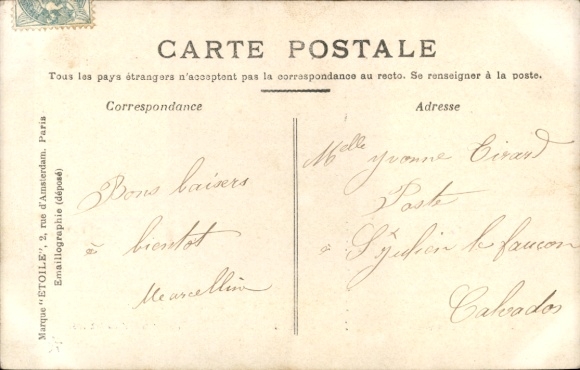 CARTE POSTALE
Tous les pays étrangers n'acceptent pas la correspondance au recto. Se renseigner à la poste.
Correspondance
Bons baisers
à bientot
Marcelline
Adresse
Melle Yvonne Cirard
Poste
à St Julien le faucon
Calvados
Marque "ÉTOILE", 2, rue d'Amsterdam. Paris
Emaillographie (déposé)